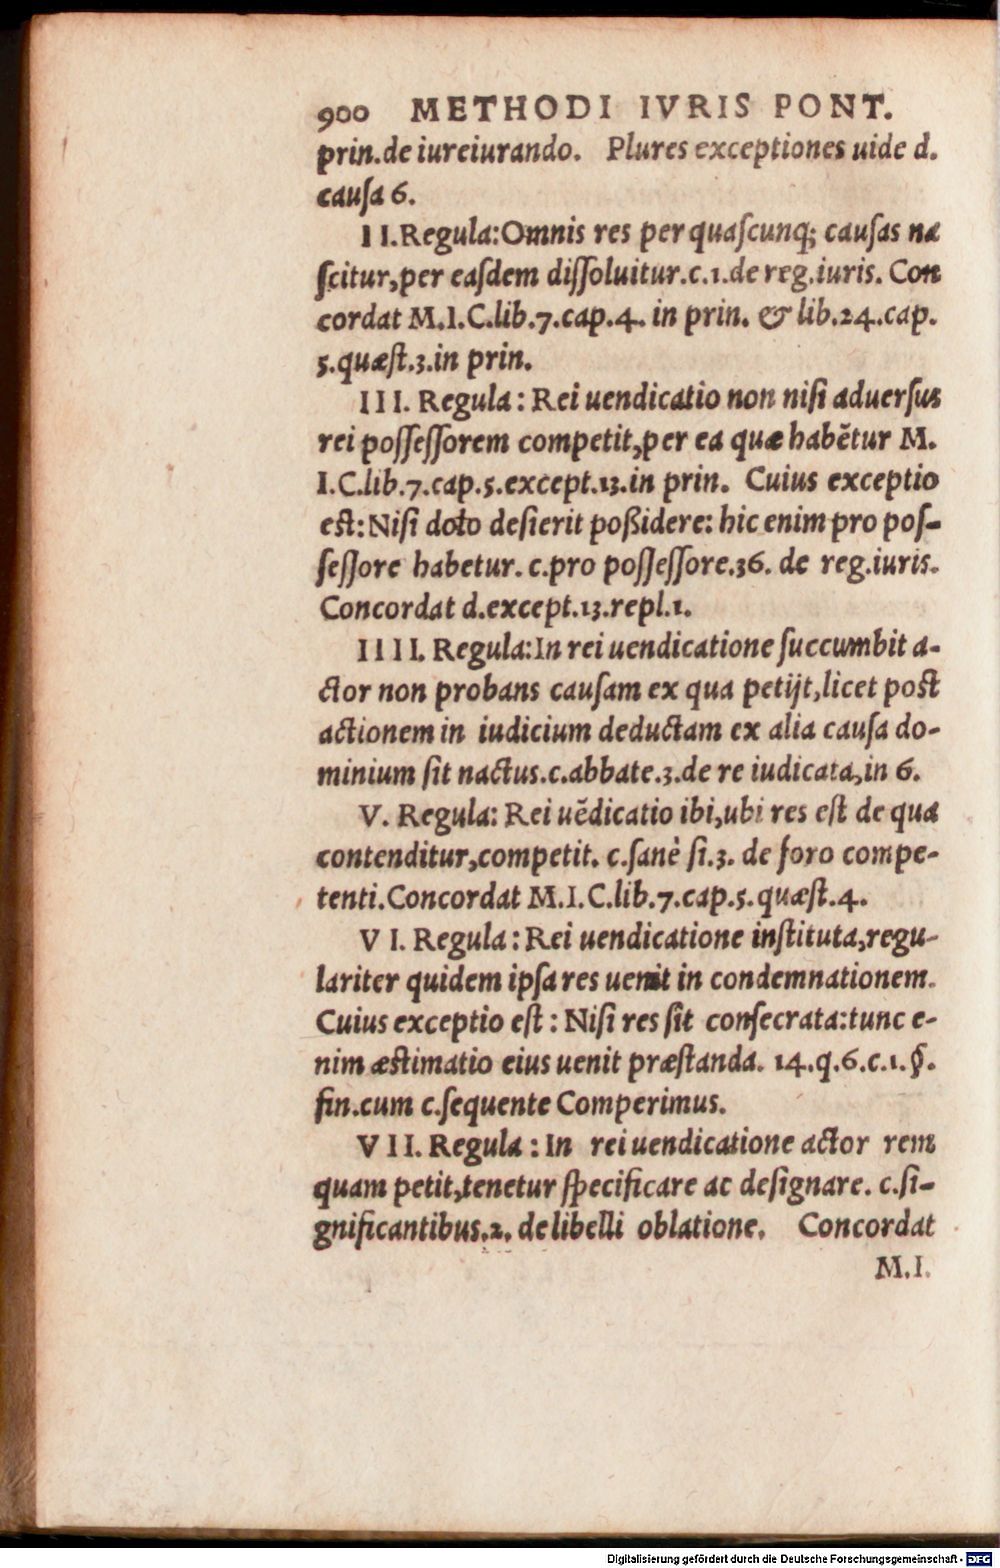 900 METHODI IVRIS PONT.
prin.de iureiurando. Plures exceptiones uide d.
cauſa 6.
II.Regula:Omnis res per quaſcunq; cauſas na
ſcitur,per eaſdem diſſoluitur.c.1.de reg.iuris. Con
cordat M.I.C.lib.7.cap.4. in prin. & lib.24.cap.
5.quæſt.3.in prin.
III. Regula: Rei uendicatio non niſi aduerſus
rei poſſeſſorem competit,per ea quæ habẽtur M.
I.C.lib.7.cap.5.except.13.in prin. Cuius exceptio
eſt: Niſi dolo deſierit poßidere: hic enim pro poſ-
ſeſſore habetur. c.pro poſſeſſore.36. de reg.iuris.
Concordat d.except.13.repl.1.
IIII. Regula:In rei uendicatione ſuccumbit a-
ctor non probans cauſam ex qua petijt,licet poſt
actionem in iudicium deductam ex alia cauſa do-
minium ſit nactus.c.abbate.3.de re iudicata,in 6.
V. Regula: Rei uẽdicatio ibi,ubi res eſt de qua
contenditur,competit. c.ſanè ſi.3. de foro compe-
tenti.Concordat M.I.C.lib.7.cap.5.quæſt.4.
VI. Regula: Rei uendicatione inſtituta,regu-
lariter quidem ipſa res uenit in condemnationem.
Cuius exceptio eſt: Niſi res ſit conſecrata:tunc e-
nim æſtimatio eius uenit præſtanda. 14.q.6.c.1.§.
fin.cum c.ſequente Comperimus.
VII. Regula: In rei uendicatione actor rem
quam petit,tenetur ſpecificare ac deſignare. c.ſi-
gnificantibus.2. de libelli oblatione. Concordat
M.I.
Digitalisierung gefördert durch die Deutsche Forschungsgemeinschaft - DFG